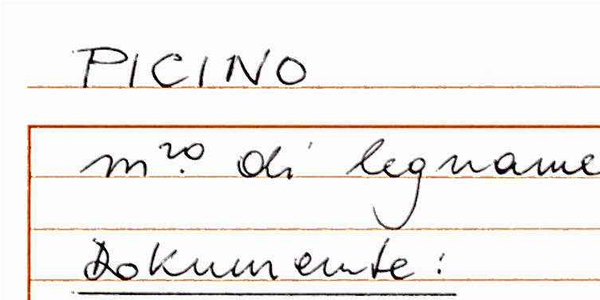 PICINO
m.ro di legname
Dokumente: